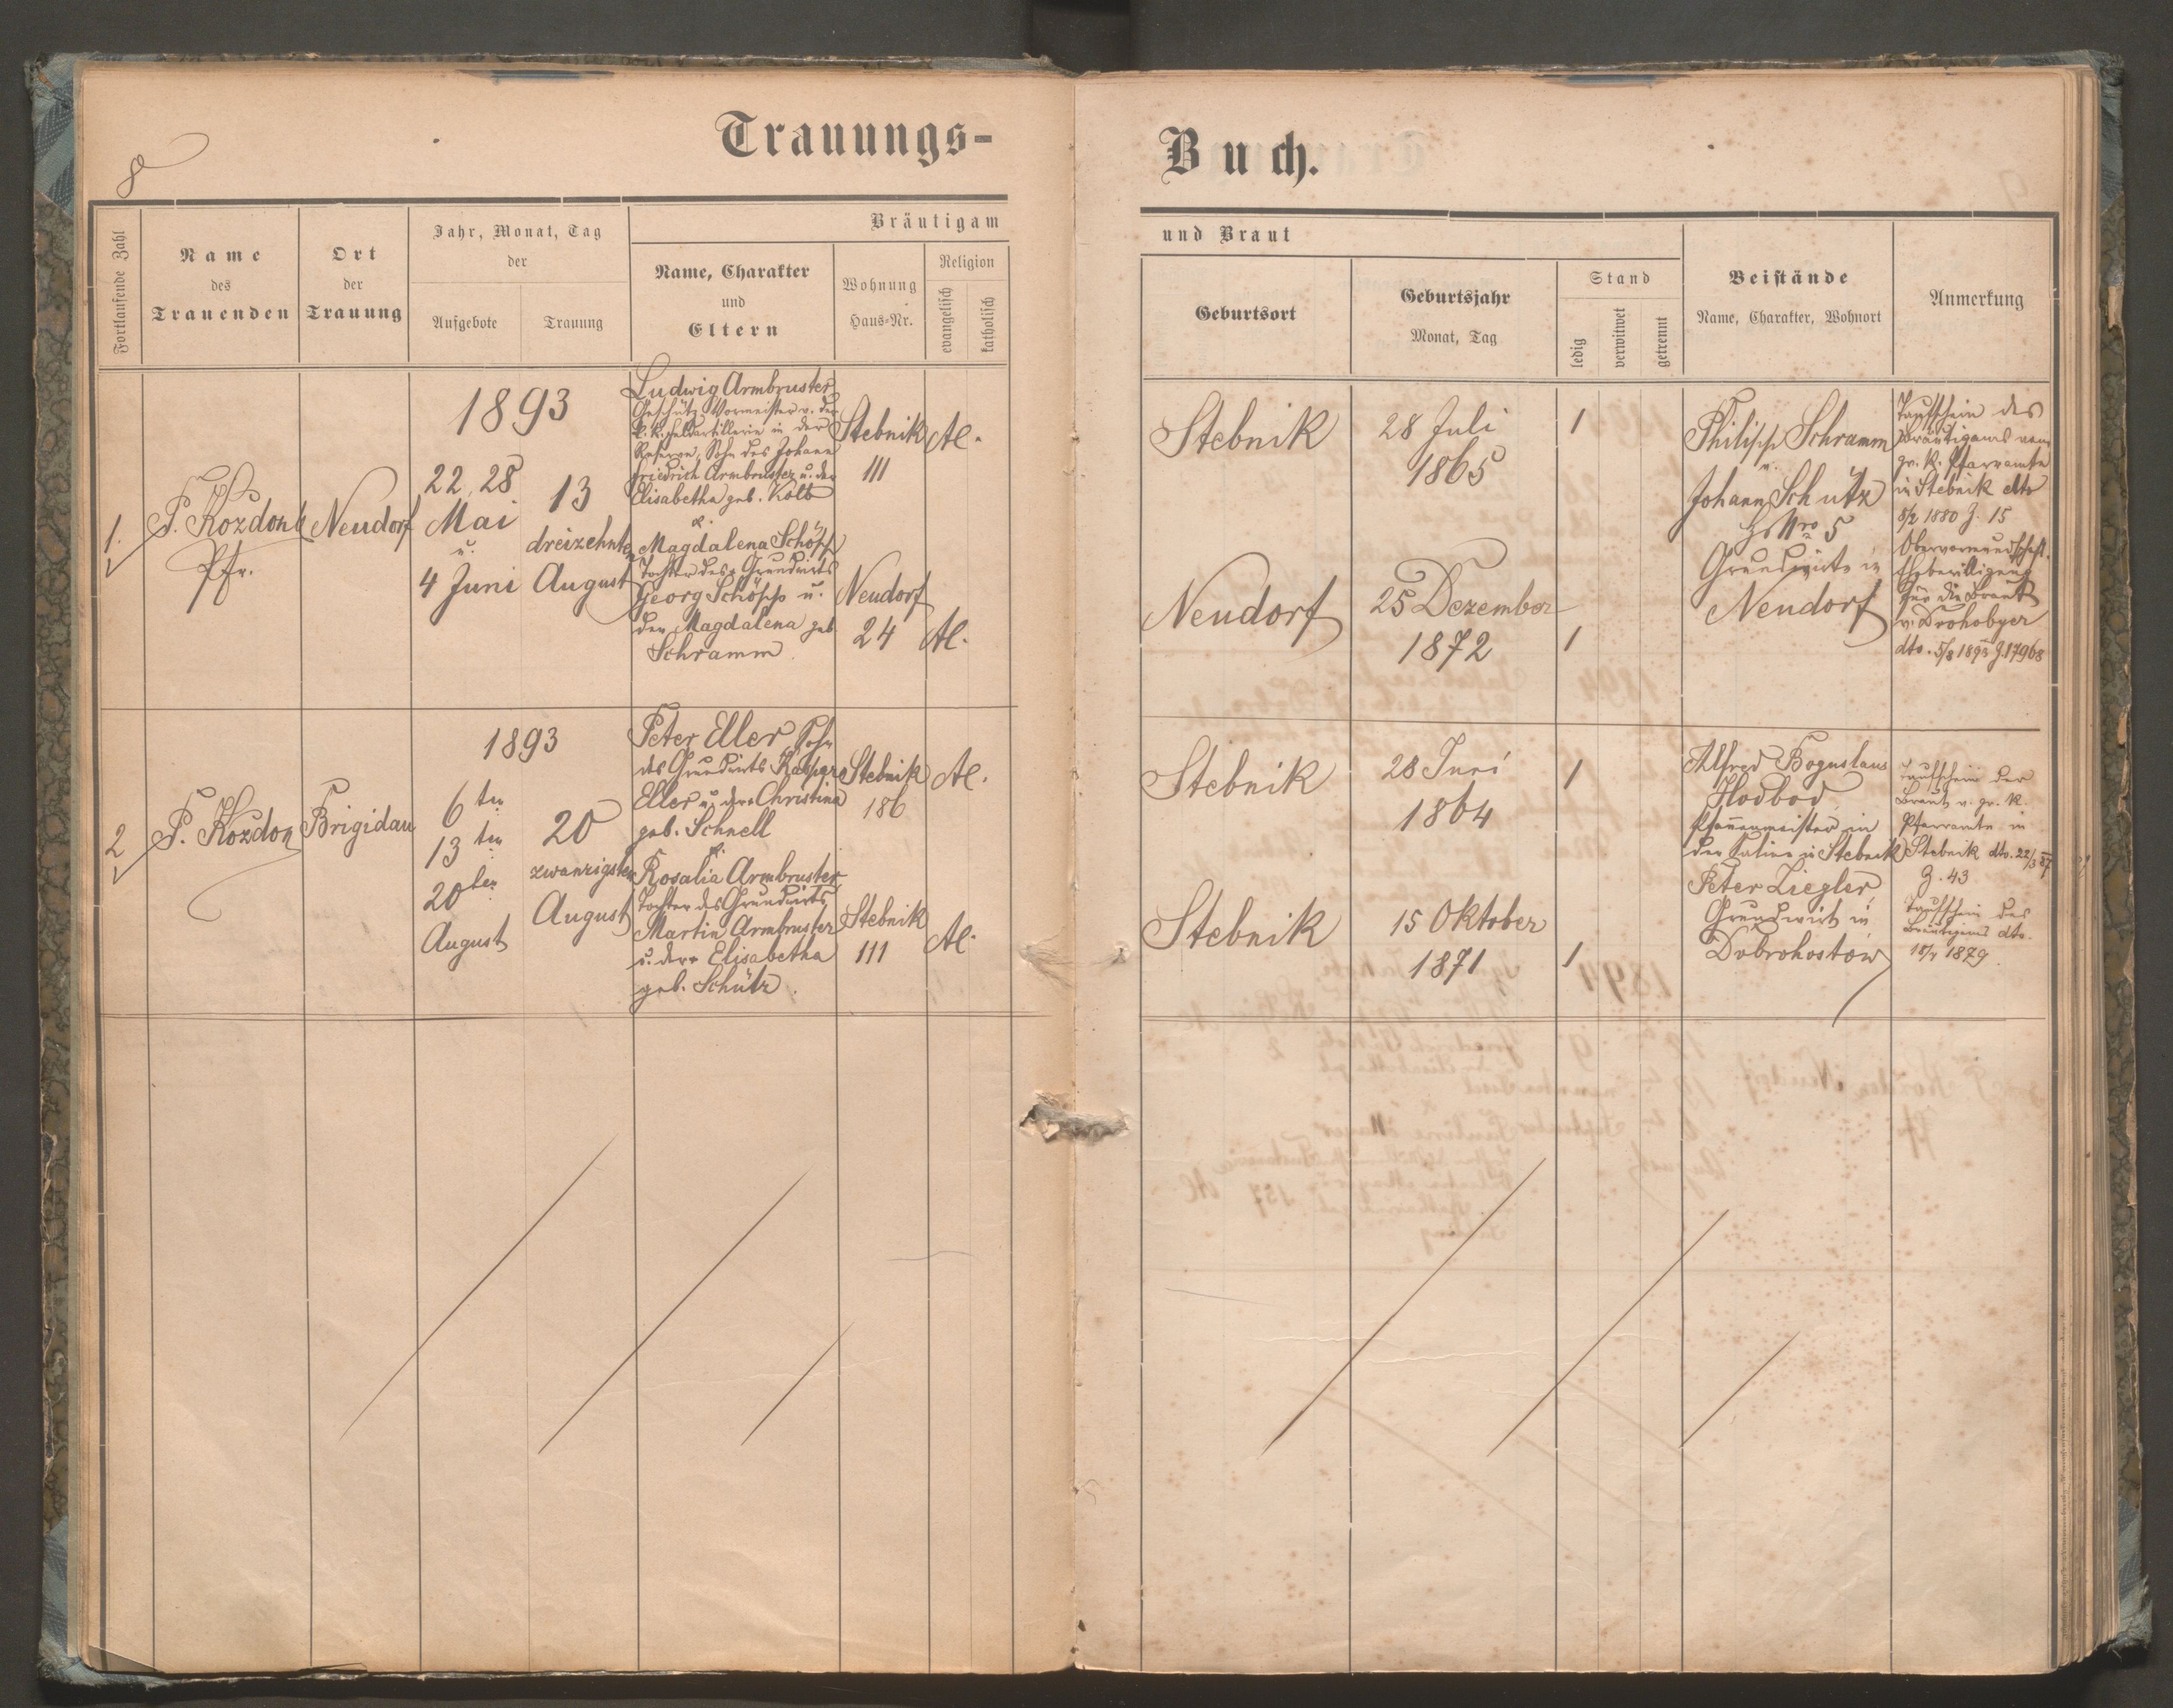 8
Trauungs-
Buch.
Fortlaufende Zahl
Name
des
Trauenden
Ort
der
Trauung
Jahr, Monat, Tag
der
Aufgebote
Trauung
Bräutigam
Name, Charakter
und
Eltern
Wohnung
Haus-Nr.
Religion
evangelisch
katholisch
und Braut
Geburtsort
Geburtsjahr
Monat, Tag
Stand
ledig
verwitwet
getrennt
Beistände
Name, Charakter, Wohnort
Anmerkung
1.
P. Kozdon
Pfr.
Neudorf
1893
22, 28
Mai
u.
4 Juni
13
dreizehnten
August
Ludwig Armbruster
Geschütz Vormeister v. der
k. k. Feldartillerie in der
Reserve, Sohn des Johann
Friedrich Armbruster u. der
Elisabetha geb. Kolb
&
Magdalena Schöpp
Tochter des Grundwirts
Georg Schöpp u.
der Magdalena geb.
Schramm
Stebnik
111
Neudorf
24
AC.
AC.
Stebnik
28 Juli
1865
1
Neudorf
25 Dezember
1872
1
Philipp Schramm
u.
Johann Schütz
Nro 5
Grundwirte in
Neudorf
Taufschein des
Bräutigams vom
gr. k. Pfarramte
in Stebnik dto
8/2 1880 Z. 15
Obervormundschaft.
Ehebewilligung
für die Braut
v. Drohobycz
dto. 5/8 1893 Z. 17968
2
P. Kozdon
Brigidau
1893
6ten
13ten
20ten
August
20
zwanzigsten
August
Peter Eller, Sohn
des Grundwirts Kaspar
Eller u. der Christina
geb. Schnell
&
Rosalia Armbruster
Tochter des Grundwirts
Martin Armbruster
u. der Elisabetha
geb. Schütz.
Stebnik
186
Stebnik
111
AC.
AC.
Stebnik
28 Juni
1864
1
Stebnik
15 Oktober
1871
1
Alfred Boguslaus
Hodbod
Pfannenmeister in
der Saline in Stebnik
Peter Ziegler
Grundwirt in
Dobrohostow
Taufschein der
Braut v. gr. k.
Pfarramte in
Stebnik dto. 22/3 87
Z. 43
Taufschein des
Bräutigams dto.
1879.